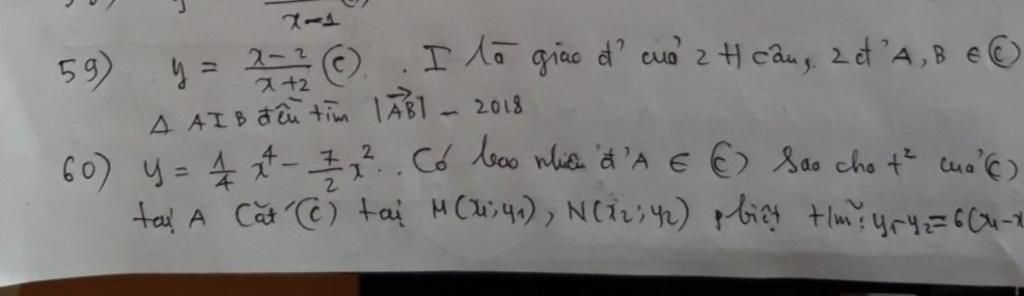 x-1
59) y = \frac{x-2}{x+2} (C). I là giao đ' của 2 t/cận, 2 đ' A, B ∈ (C)
Δ AIB đều tìm |\vec{AB}| - 2018
60) y = \frac{1}{4} x^4 - \frac{7}{2} x^2 .. Có bao nhiêu đ' A ∈ (C) sao cho t^2 của (C)
tại A cắt (C) tại M(x_1; y_1), N(x_2; y_2) pbiệt t/mãn: y_1-y_2=6(x_1-x